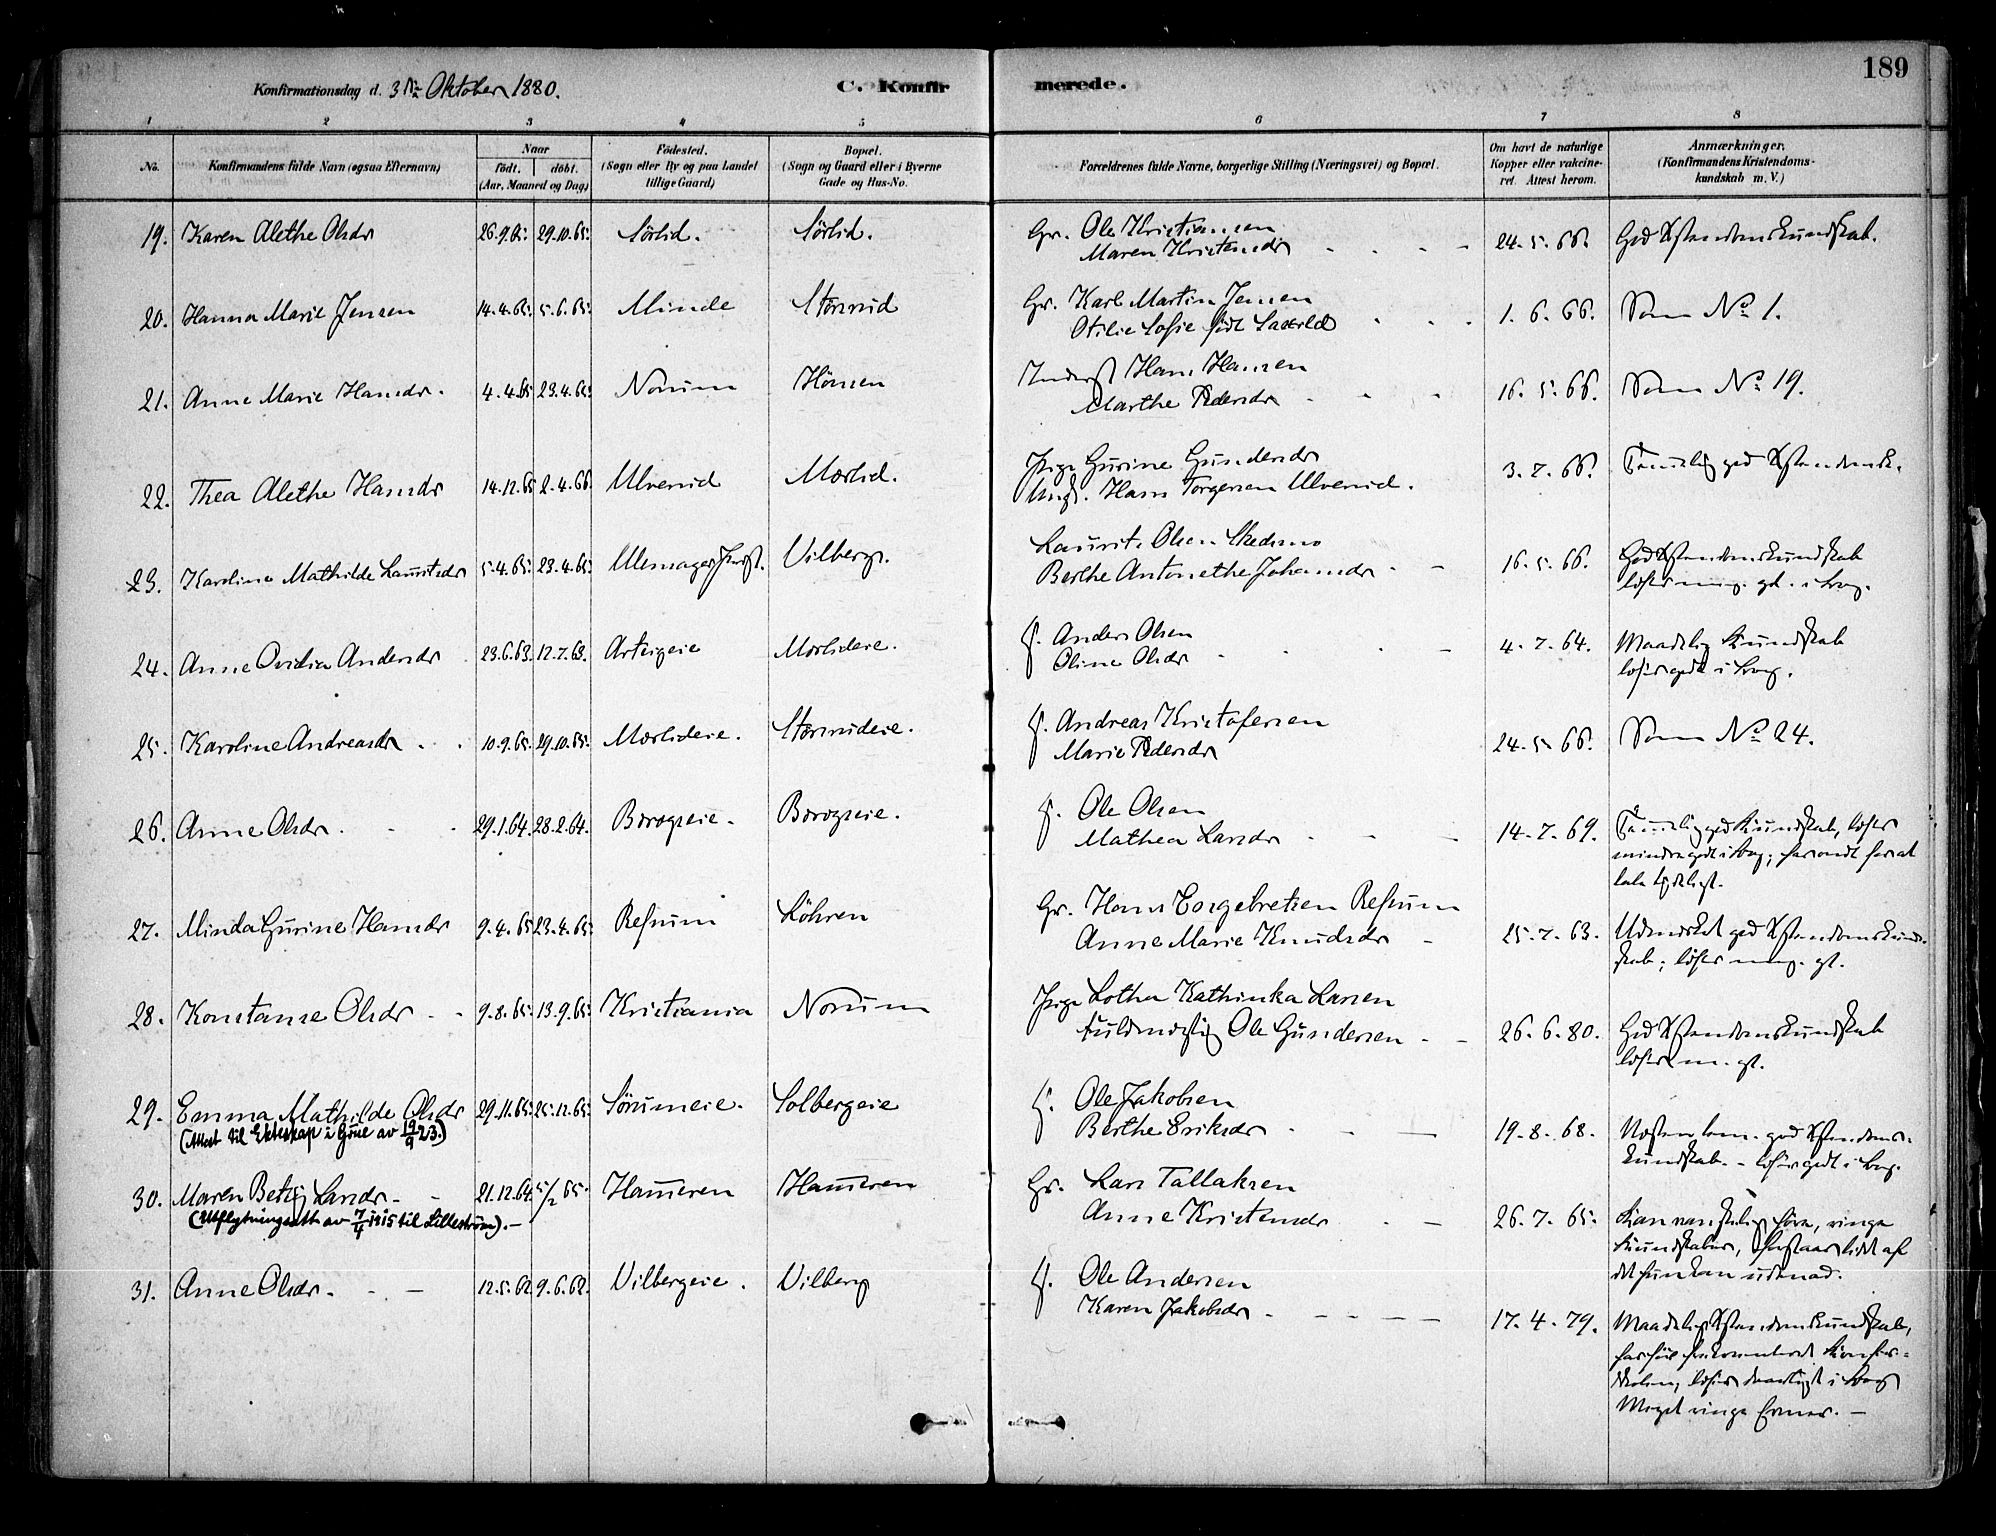 189
Konfirmationsdag d. 3die Oktober 1880.
C. Konfirmerede.
1 2 3 4 5 6 7 8
No.
Konfirmandens fulde Navn (ogsaa Efternavn)
Naar
født. døbt.
(Aar, Maaned og Dag)
Fødested.
(Sogn eller By og paa Landet
tillige Gaard)
Bopæl.
(Sogn og Gaard eller i Byerne
Gade og Hus-No.
Forældrenes fulde Navne, borgerlige Stilling (Næringsvei) og Bopæl.
Om havt de naturlige
Kopper eller vakcine-
ret. Attest herom.
Anmærkninger.
(Konfirmandens Kristendoms-
kundskab m. V.)
19. Karen Alethe Olsdr 26.9.65. 29.10.65. Sörlid. Sörlid. Gr. Ole Kristiansen
Maren Kristensdr 24.5.66. God Kristendomskundskab.
20. Hanna Marie Jensen 14.4.65. 5.6.65. Minde Stenerud Gr. Karl Martin Jensen
Otilie Sofie født 1.6.66. Som No 1.
21. Anne Marie Hansdr. 4.4.65 23.4.65. Norum Hönsen Inderst Hans Hansen
Marthe Pedersdr 16.5.66. Som No 19.
22. Thea Alethe Hansdr 14.12.65 2.4.66 Ulverud Mærlid. Pige Gurine Gundersdr
Ungk. Hans Torgersen Ulverud. 3.7.66. Temmelig god Kristendomsk.
23. Karoline Mathilde Lauritsdr 5.4.65. 23.4.65. Vilberg. Laurits Olsen Skedsmo
Berthe Antonethe Johansdr 16.5.66. God Kristendomskundskab
læser nog. gdt. i Bog.
24. Anne Ovidia Andersdr 23.6.63. 12.7.63. Arteigeie Mærlideie. f. Anders Olsen
Oline Olsdr 4.7.64. Maadelig Kundskab
læser godt i Bog.
25. Karoline Andreasdr 10.9.65. 29.10.65. Mærlideie. Stenerudeie. f. Andreas Kristofersen
Marie Pedersdr 24.5.66. Som No 24.
26. Anne Olsdr. 29.1.64. 28.2.64. Borogseie. Borogseie. f. Ole Olsen
Mathea Larsdr 14.7.69. Temmelig god Kundskab, læser
mindre godt i Bog; har ondt for at
tale tydeligt.
27. Minda Gurine Hansdr 9.4.65 23.4.65. Refsum Löhren Gr. Hans Torgebretsen Refsum
Anne Marie Knudsdr 25.7.63. Udmerket god Kristendomskund-
skab; læser nog. gt.
28. Konstanse Olsdr 9.8.65. 13.9.65. Kristiania Norum Pige Lothea Kathinka Larsen
Fuldmægtig Ole Gundersen 26.6.80. God Kristendomskundskab
læser n. gt.
29. Emma Mathilde Olsdr 29.11.65. 25.12.65. Sörumeie. Solbergeie f. Ole Jakobsen
(Attest til Ekteskap i Grue av 19/9 23.)
Berthe Eriksdr 19.8.68. Næsten tem. god Kristendoms-
kundskab. - læser godt i Bog.
30. Maren Betzy Larsdr 21.12.64. 5/2 65. Hammeren Hammeren Gr. Lars Tallaksen
(Utflytningsatt. av 7/4 1915 til Lillestrøm).
Anne Kristensdr 26.7.65. Kan vanskelig høre, ringe
Kundskaber, forstaar lidt af
det hun kan udenad.
31. Anne Olsdr. 12.5.62. 9.6.62. Vilbergeie. Vilberg f. Ole Andersen
Karen Jakobsdr 17.4.79. Maadelig Kristendomskundskab,
læser daarligt i Bog
Meget ringe Evner.